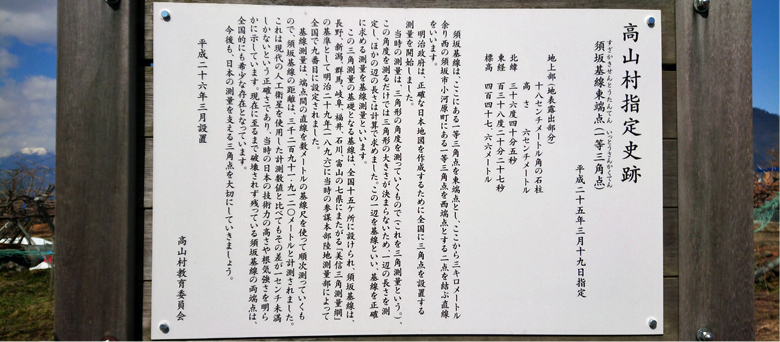 高山村指定史跡
すざかきせんとうたんてん いっとうさんかくてん
須坂基線東端点(一等三角点)
平成二十五年三月十九日指定
地上部(地表露出部分)
十八センチメートル角の石柱
高さ 六センチメートル
北緯 三十六度四十分五秒
東経 百三十八度二十分二十七秒
標高 四百四十七・六六メートル
須坂基線は、ここにある一等三角点を東端点とし、ここから三キロメートル
余り西の須坂市小河原町にある一等三角点を西端点とする二点を結ぶ直線
をいいます。
明治政府は、正確な日本地図を作成するために全国に三角点を設置する
測量を開始しました。
当時の測量は、三角形の角度を測っていくもので(これを三角測量という。)、
この角度を測るだけでは三角形の大きさが決まらないため、一辺の長さを測
定し、ほかの辺の長さは計算で求めました。この一辺を基線といい、基線を正確
に求める測量を基線測量といいます。
この三角測量の基礎となる基線は、全国十五ケ所に設けられ、須坂基線は、
長野、新潟、群馬、岐阜、福井、石川、富山の七県にまたがる「美信三角測量網」
の基準として明治二十九年(一八九六)に当時の参謀本部陸地測量部によって
全国で九番目に設定されました。
基線測量は、端点間の直線を数メートルの基線尺を使って順次測っていくも
ので、須坂基線の距離は、三千二百九十一・九一二〇メートルと計測されました。
これは現代の人工衛星を使用した計測数値と比べてもその差が一センチ未満
しかないという正確さであり、当時の日本の技術力の高さや根気強さを明ら
かに示しています。現在に至るまで破壊されず残っている須坂基線の両端点は、
全国的にも希少な存在となっています。
今後も、日本の測量を支える三角点を大切にしていきましょう。
平成二十六年三月設置
高山村教育委員会